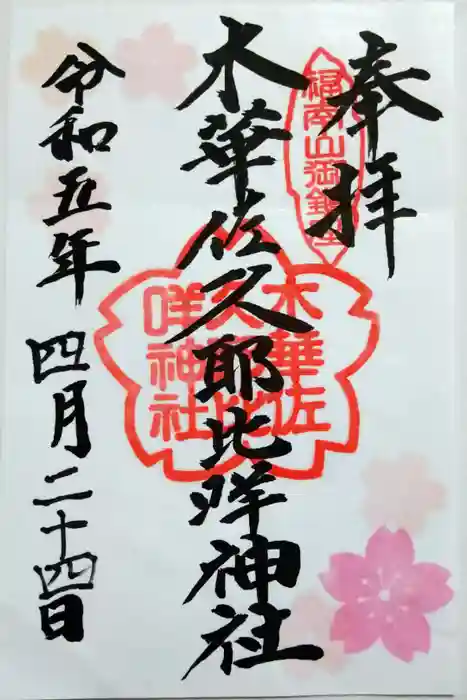 奉拝
福南山御鎮座
木華佐久耶比咩神社
木華佐
久耶比
咩神社
令和五年
四月二十四日